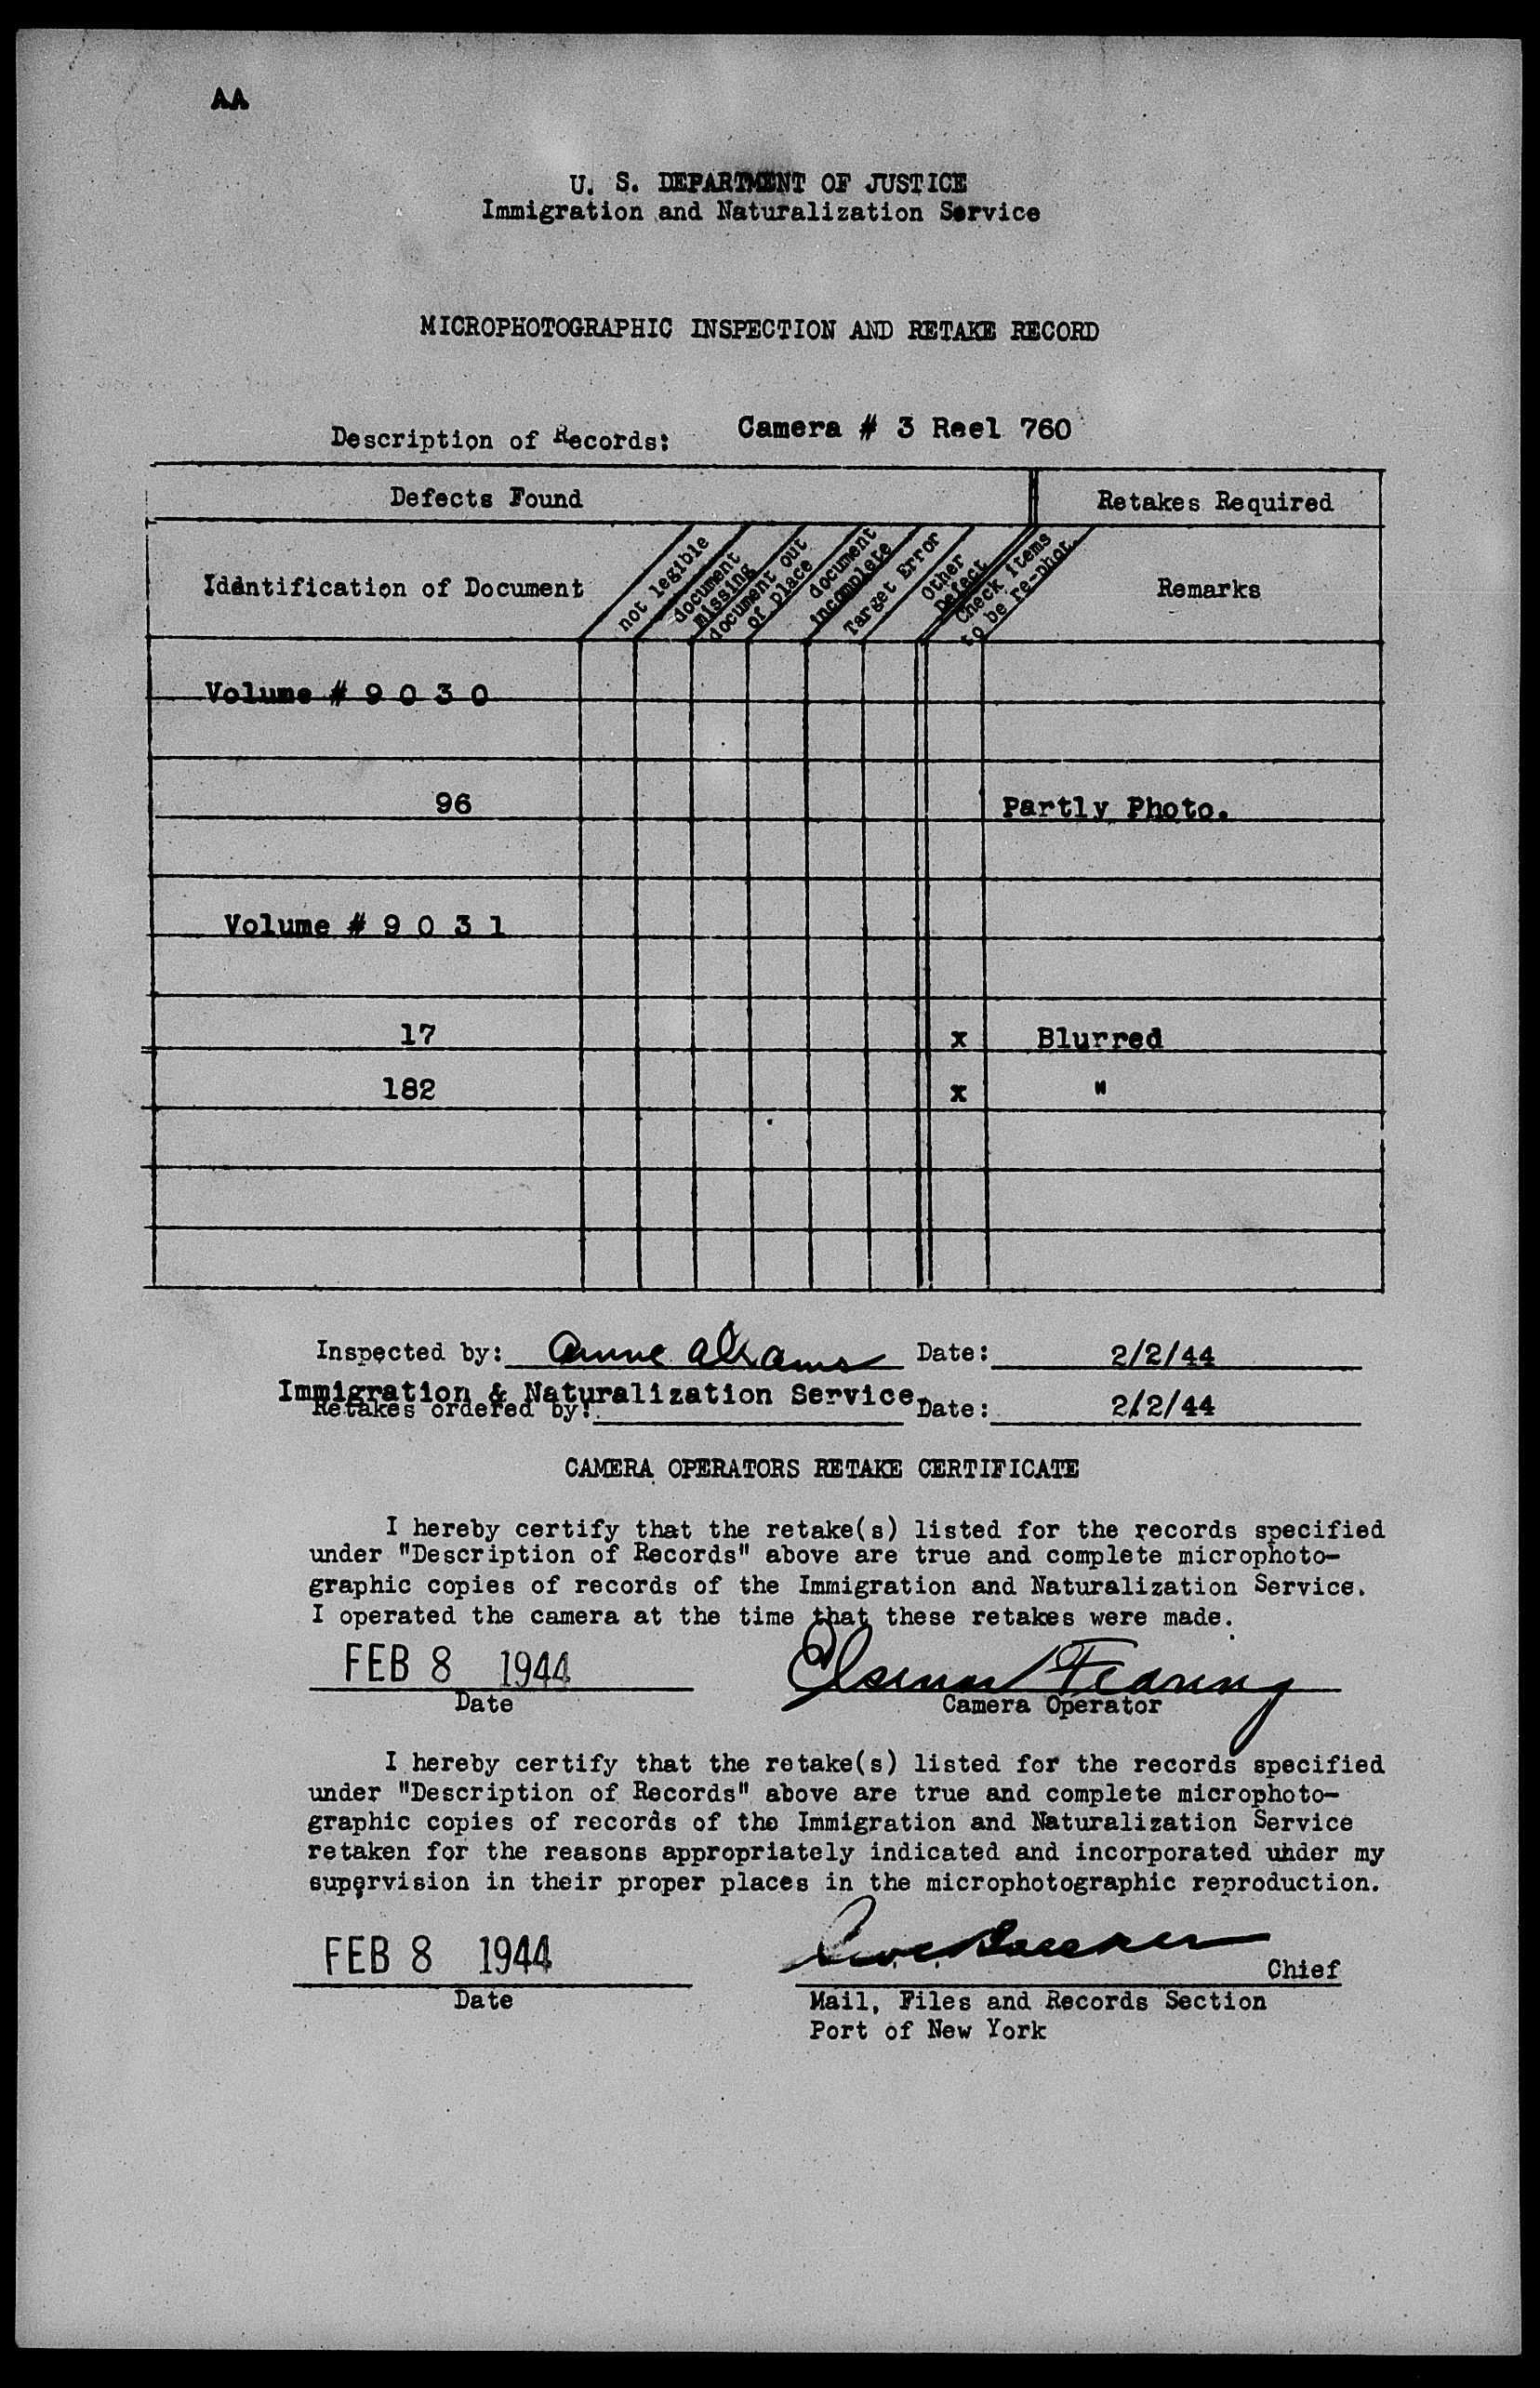 AA
U. S. DEPARTMENT OF JUSTICE
Immigration and Naturalization Service
MICROPHOTOGRAPHIC INSPECTION AND RETAKE RECORD
Description of Records: Camera # 3 Reel 760
Defects Found Retakes Required
Identification of Document not legible document missing document out of place document incomplete Target Error Other Defect Check Items to be re-phot. Remarks
Volume # 9 0 3 0
96 Partly Photo.
Volume # 9 0 3 1
17 x Blurred
182 x "
Inspected by: Anne Abrams Date: 2/2/44
Immigration & Naturalization Service.
Retakes ordered by: Date: 2/2/44
CAMERA OPERATORS RETAKE CERTIFICATE
I hereby certify that the retake(s) listed for the records specified
under "Description of Records" above are true and complete microphoto-
graphic copies of records of the Immigration and Naturalization Service.
I operated the camera at the time that these retakes were made.
FEB 8 1944 Fearing
Date Camera Operator
I hereby certify that the retake(s) listed for the records specified
under "Description of Records" above are true and complete microphoto-
graphic copies of records of the Immigration and Naturalization Service
retaken for the reasons appropriately indicated and incorporated under my
supervision in their proper places in the microphotographic reproduction.
FEB 8 1944 Chief
Date Mail, Files and Records Section
Port of New York